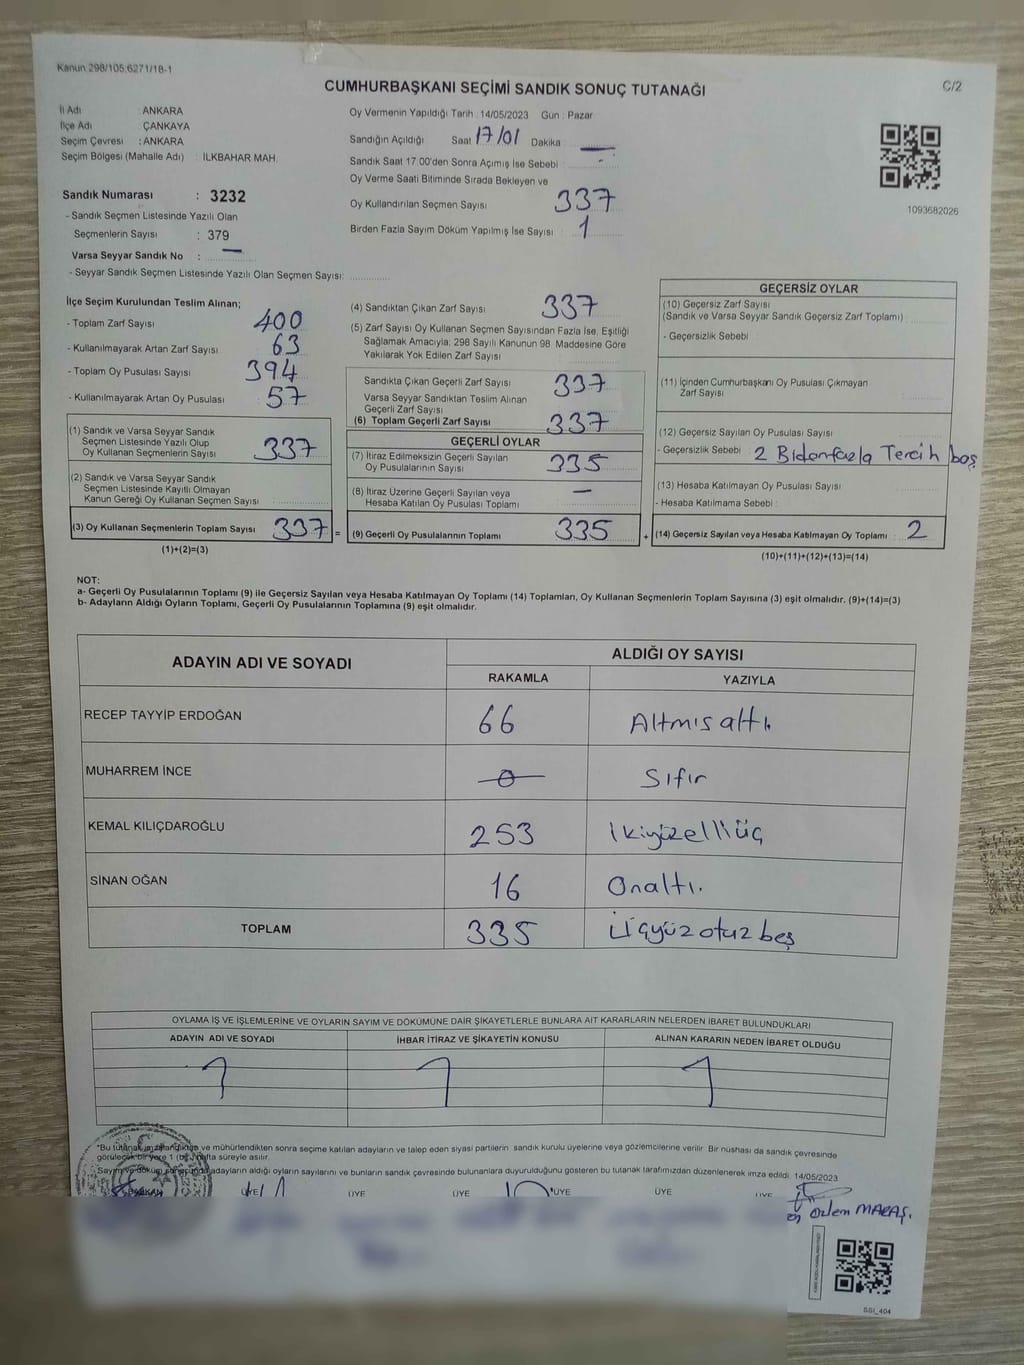 Kanun 298/105;6271/18-1
CUMHURBAŞKANI SEÇİMİ SANDIK SONUÇ TUTANAĞI
C/2
İl Adı : ANKARA
İlçe Adı : ÇANKAYA
Seçim Çevresi : ANKARA
Seçim Bölgesi (Mahalle Adı) : İLKBAHAR MAH.
Sandık Numarası : 3232
- Sandık Seçmen Listesinde Yazılı Olan
Seçmenlerin Sayısı : 379
Varsa Seyyar Sandık No : —
- Seyyar Sandık Seçmen Listesinde Yazılı Olan Seçmen Sayısı:
Oy Vermenin Yapıldığı Tarih : 14/05/2023 Gün : Pazar
Sandığın Açıldığı Saat 17/01 Dakika
Sandık Saat 17:00'den Sonra Açımış İse Sebebi :
Oy Verme Saati Bitiminde Sırada Bekleyen ve
Oy Kullandırılan Seçmen Sayısı 337
Birden Fazla Sayım Döküm Yapılmış İse Sayısı : 1
1093682026
İlçe Seçim Kurulundan Teslim Alınan;
- Toplam Zarf Sayısı 400
- Kullanılmayarak Artan Zarf Sayısı 63
- Toplam Oy Pusulası Sayısı 394
- Kullanılmayarak Artan Oy Pusulası 57
(1) Sandık ve Varsa Seyyar Sandık
Seçmen Listesinde Yazılı Olup
Oy Kullanan Seçmenlerin Sayısı 337
(2) Sandık ve Varsa Seyyar Sandık
Seçmen Listesinde Kayıtlı Olmayan
Kanun Gereği Oy Kullanan Seçmen Sayısı
(3) Oy Kullanan Seçmenlerin Toplam Sayısı 337 =
(1)+(2)=(3)
(4) Sandıktan Çıkan Zarf Sayısı 337
(5) Zarf Sayısı Oy Kullanan Seçmen Sayısından Fazla İse, Eşitliği
Sağlamak Amacıyla; 298 Sayılı Kanunun 98. Maddesine Göre
Yakılarak Yok Edilen Zarf Sayısı
Sandıkta Çıkan Geçerli Zarf Sayısı 337
Varsa Seyyar Sandıktan Teslim Alınan
Geçerli Zarf Sayısı
(6) Toplam Geçerli Zarf Sayısı 337
GEÇERLİ OYLAR
(7) İtiraz Edilmeksizin Geçerli Sayılan
Oy Pusulalarının Sayısı 335
(8) İtiraz Üzerine Geçerli Sayılan veya
Hesaba Katılan Oy Pusulası Toplamı —
(9) Geçerli Oy Pusulalarının Toplamı 335 +
GEÇERSİZ OYLAR
(10) Geçersiz Zarf Sayısı
(Sandık ve Varsa Seyyar Sandık Geçersiz Zarf Toplamı) :
- Geçersizlik Sebebi
(11) İçinden Cumhurbaşkanı Oy Pusulası Çıkmayan
Zarf Sayısı
(12) Geçersiz Sayılan Oy Pusulası Sayısı
- Geçersizlik Sebebi 2 Bidenfazla Tercih boş
(13) Hesaba Katılmayan Oy Pusulası Sayısı
- Hesaba Katılmama Sebebi :
(14) Geçersiz Sayılan veya Hesaba Katılmayan Oy Toplamı : 2
(10)+(11)+(12)+(13)=(14)
NOT:
a- Geçerli Oy Pusulalarının Toplamı (9) ile Geçersiz Sayılan veya Hesaba Katılmayan Oy Toplamı (14) Toplamları, Oy Kullanan Seçmenlerin Toplam Sayısına (3) eşit olmalıdır. (9)+(14)=(3)
b- Adayların Aldığı Oyların Toplamı, Geçerli Oy Pusulalarının Toplamına (9) eşit olmalıdır.
ADAYIN ADI VE SOYADI ALDIĞI OY SAYISI
RAKAMLA YAZIYLA
RECEP TAYYİP ERDOĞAN 66 Altmış altı.
MUHARREM İNCE 0 Sıfır
KEMAL KILIÇDAROĞLU 253 İkiyüzelliüç
SİNAN OĞAN 16 Onaltı.
TOPLAM 335 Üçyüzotuzbeş
OYLAMA İŞ VE İŞLEMLERİNE VE OYLARIN SAYIM VE DÖKÜMÜNE DAİR ŞİKAYETLERLE BUNLARA AİT KARARLARIN NELERDEN İBARET BULUNDUKLARI
ADAYIN ADI VE SOYADI İHBAR İTİRAZ VE ŞİKAYETİN KONUSU ALINAN KARARIN NEDEN İBARET OLDUĞU
"Bu tutanak imzalandıktan ve mühürlendikten sonra seçime katılan adayların ve talep eden siyasi partilerin sandık kurulu üyelerine veya gözlemcilerine verilir. Bir nüshası da sandık çevresinde
görülecek bir yere 1 (bir) hafta süreyle asılır.
Sayım ve döküm sonucunda adayların aldığı oyların sayılarını ve bunların sandık çevresinde bulunanlara duyurulduğunu gösteren bu tutanak tarafımızdan düzenlenerek imza edildi. 14/05/2023
BAŞKAN ÜYE ÜYE ÜYE ÜYE ÜYE ÜYE
Özlem MARAŞ.
SSİ_404